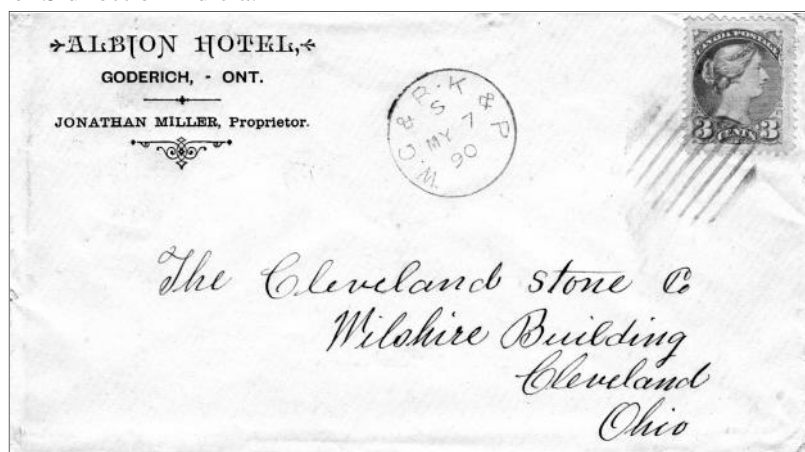 ALBION HOTEL,
GODERICH, - ONT.
JONATHAN MILLER, Proprietor.
W.G. & R.K & P
S
MY 7
90
CANADA POSTAGE
3 CENTS 3
The Cleveland stone Co
Wilshire Building
Cleveland
Ohio